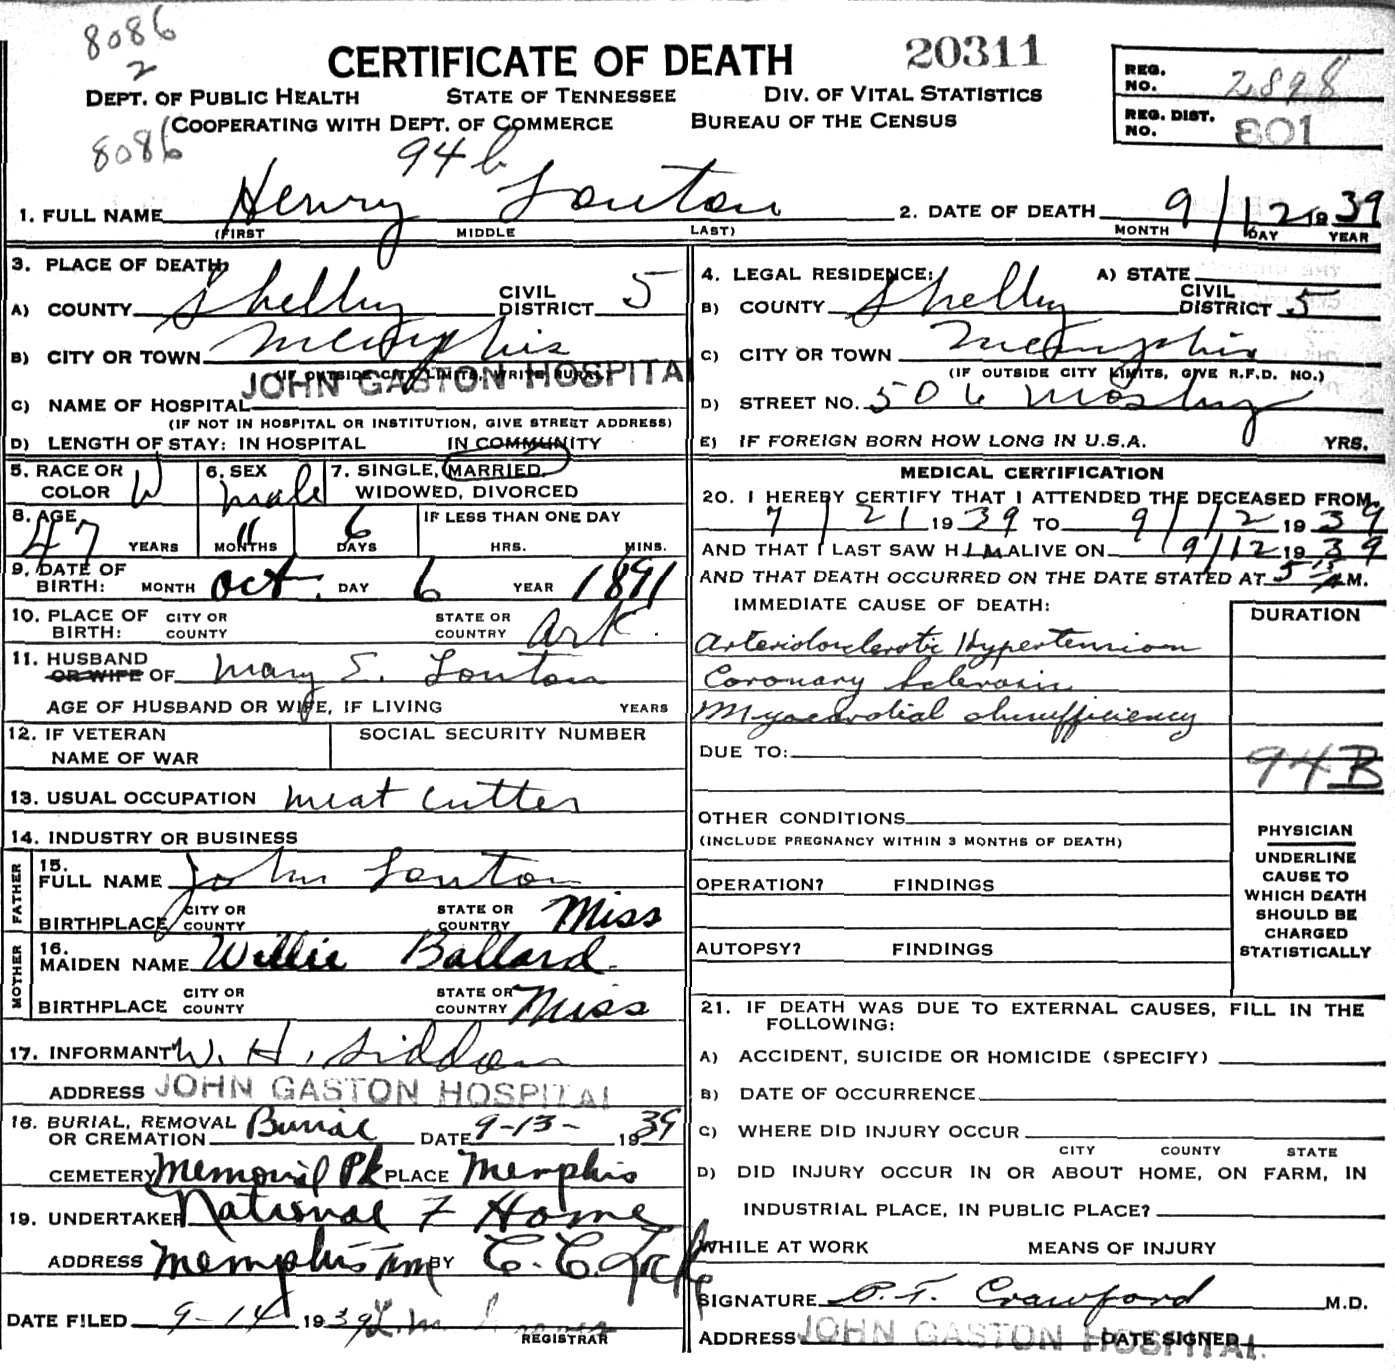 8086
2
CERTIFICATE OF DEATH 20311
REG. NO. 2898
DEPT. OF PUBLIC HEALTH STATE OF TENNESSEE DIV. OF VITAL STATISTICS
COOPERATING WITH DEPT. OF COMMERCE BUREAU OF THE CENSUS
REG. DIST. NO. 801
8086 94 b
1. FULL NAME Henry Louton 2. DATE OF DEATH 9/12 1939
(FIRST MIDDLE LAST) MONTH DAY YEAR
3. PLACE OF DEATH:
A) COUNTY Shelby CIVIL DISTRICT 5
B) CITY OR TOWN Memphis
(IF OUTSIDE CITY LIMITS, WRITE RURAL
JOHN GASTON HOSPITAL
C) NAME OF HOSPITAL
(IF NOT IN HOSPITAL OR INSTITUTION, GIVE STREET ADDRESS)
D) LENGTH OF STAY: IN HOSPITAL IN COMMUNITY
4. LEGAL RESIDENCE: A) STATE
B) COUNTY Shelby CIVIL DISTRICT 5
C) CITY OR TOWN Memphis
(IF OUTSIDE CITY LIMITS, GIVE R.F.D. NO.)
D) STREET NO. 506 Mosby
E) IF FOREIGN BORN HOW LONG IN U.S.A. YRS.
5. RACE OR COLOR W 6. SEX male 7. SINGLE, MARRIED, WIDOWED, DIVORCED
8. AGE 47 YEARS 11 MONTHS 6 DAYS IF LESS THAN ONE DAY HRS. MINS.
9. DATE OF BIRTH: MONTH Oct. DAY 6 YEAR 1891
10. PLACE OF BIRTH: CITY OR COUNTY STATE OR COUNTRY Ark.
11. HUSBAND OR WIFE OF Mary E. Louton
AGE OF HUSBAND OR WIFE, IF LIVING YEARS
12. IF VETERAN NAME OF WAR SOCIAL SECURITY NUMBER
13. USUAL OCCUPATION meat cutter
14. INDUSTRY OR BUSINESS
FATHER
15. FULL NAME John Louton
BIRTHPLACE CITY OR COUNTY STATE OR COUNTRY Miss
MOTHER
16. MAIDEN NAME Willie Ballard
BIRTHPLACE CITY OR COUNTY STATE OR COUNTRY Miss
17. INFORMANT W. H. Siddon
ADDRESS JOHN GASTON HOSPITAL
18. BURIAL, REMOVAL OR CREMATION Burial DATE 9-13- 1939
CEMETERY Memorial Pk PLACE Memphis
19. UNDERTAKER National F Home
ADDRESS Memphis Tenn BY C. C.
DATE FILED 9-14 1939 L. M. REGISTRAR
MEDICAL CERTIFICATION
20. I HEREBY CERTIFY THAT I ATTENDED THE DECEASED FROM
7/21 1939 TO 9/12 1939
AND THAT I LAST SAW HIM ALIVE ON 9/12 1939
AND THAT DEATH OCCURRED ON THE DATE STATED AT 5 15 A.M.
IMMEDIATE CAUSE OF DEATH: DURATION
Arteriolosclerotic Hypertension
Coronary Sclerosis
Myocardial Insufficiency
DUE TO: 94B
OTHER CONDITIONS
(INCLUDE PREGNANCY WITHIN 3 MONTHS OF DEATH)
OPERATION? FINDINGS
AUTOPSY? FINDINGS
PHYSICIAN
UNDERLINE
CAUSE TO
WHICH DEATH
SHOULD BE
CHARGED
STATISTICALLY
21. IF DEATH WAS DUE TO EXTERNAL CAUSES, FILL IN THE
FOLLOWING:
A) ACCIDENT, SUICIDE OR HOMICIDE (SPECIFY)
B) DATE OF OCCURRENCE
C) WHERE DID INJURY OCCUR
CITY COUNTY STATE
D) DID INJURY OCCUR IN OR ABOUT HOME, ON FARM, IN
INDUSTRIAL PLACE, IN PUBLIC PLACE?
WHILE AT WORK MEANS OF INJURY
SIGNATURE P. T. Crawford M.D.
ADDRESS JOHN GASTON HOSPITAL. DATE SIGNED